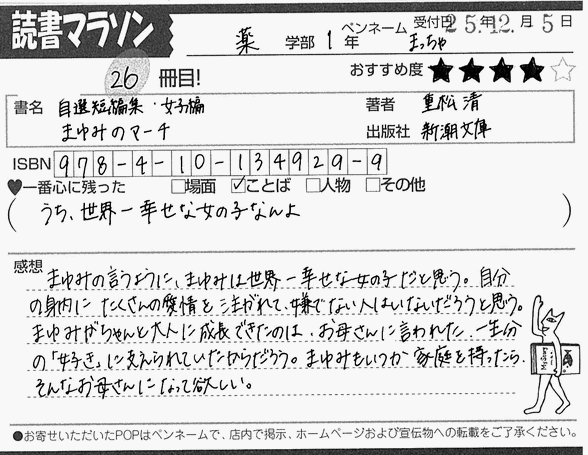 読書マラソン
薬 学部 1年 ペンネーム まっちゃ 受付日 25年12月5日
26 冊目!
おすすめ度 ★★★★☆
書名 自選短編集・女子編
まゆみのマーチ
著者 重松清
出版社 新潮文庫
ISBN 978-4-10-134929-9
♥一番心に残った □場面 ☑ことば □人物 □その他
( うち、世界一幸せな女の子なんよ )
感想
まゆみの言うように、まゆみは世界一幸せな女の子だと思う。自分
の身内にたくさんの愛情を注がれて、嫌でない人はいないだろうと思う。
まゆみがちゃんと大人に成長できたのは、お母さんに言われた、一生分
の「好き」に支えられていたからだろう。まゆみもいつか家庭を持ったら、
そんなお母さんになって欲しい。
●お寄せいただいたPOPはペンネームで、店内で掲示、ホームページおよび宣伝物への転載をご了承ください。